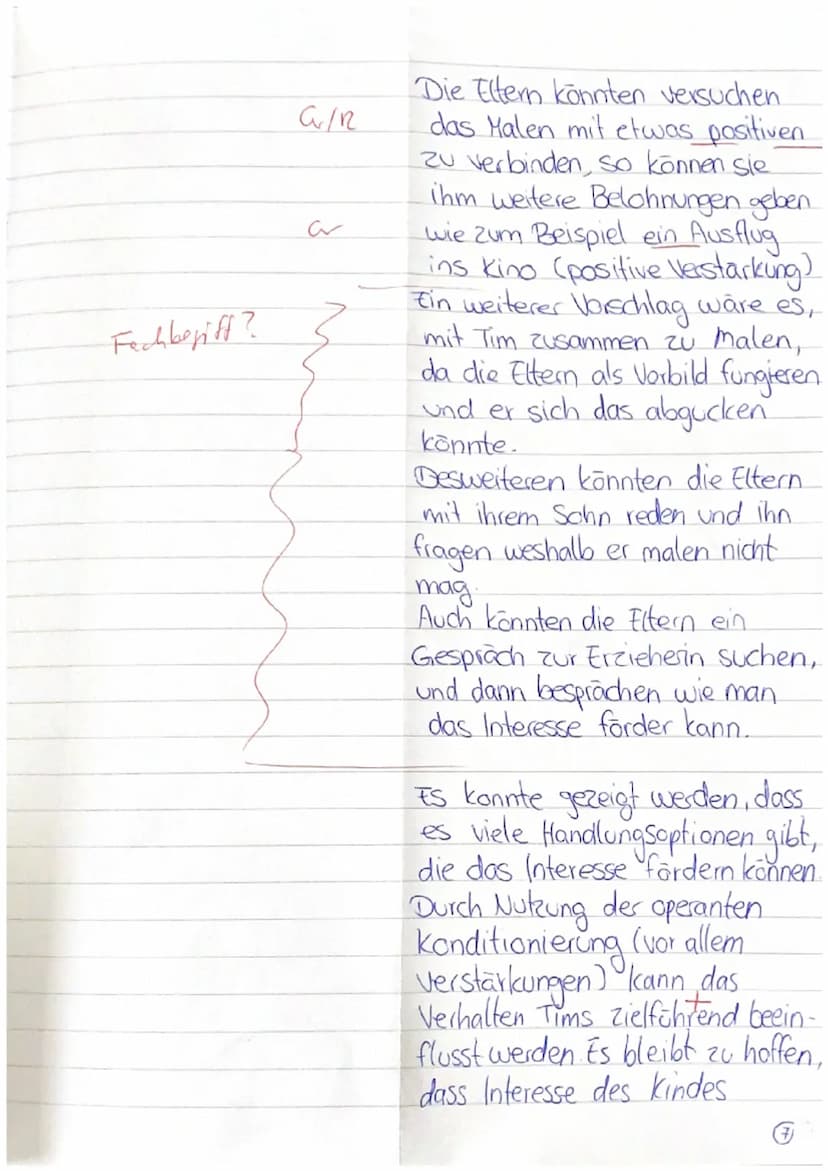 Die Eltern könnten versuchen
Gr/R
das Malen mit etwas positiven
zu verbinden, so können sie
ihm weitere Belohnungen geben
Gr
wie zum Beispiel ein Ausflug
ins Kino (positive Verstärkung)
Ein weiterer Vorschlag wäre es,
Fachbegriff?
mit Tim zusammen zu Malen,
da die Eltern als Vorbild fungieren
und er sich das abgucken
könnte.
Desweiteren könnten die Eltern
mit ihrem Sohn reden und ihn
fragen weshalb er malen nicht
mag.
Auch könnten die Eltern ein
Gespräch zur Erzieherin suchen,
und dann besprächen wie man
das Interesse förder kann.
Es konnte gezeigt werden, dass
es viele Handlungsoptionen gibt,
die das Interesse fördern können.
Durch Nutzung der operanten
Konditionierung (vor allem
Verstärkungen) kann das
Verhalten Tims zielführend beein-
flusst werden. Es bleibt zu hoffen,
dass Interesse des Kindes
7